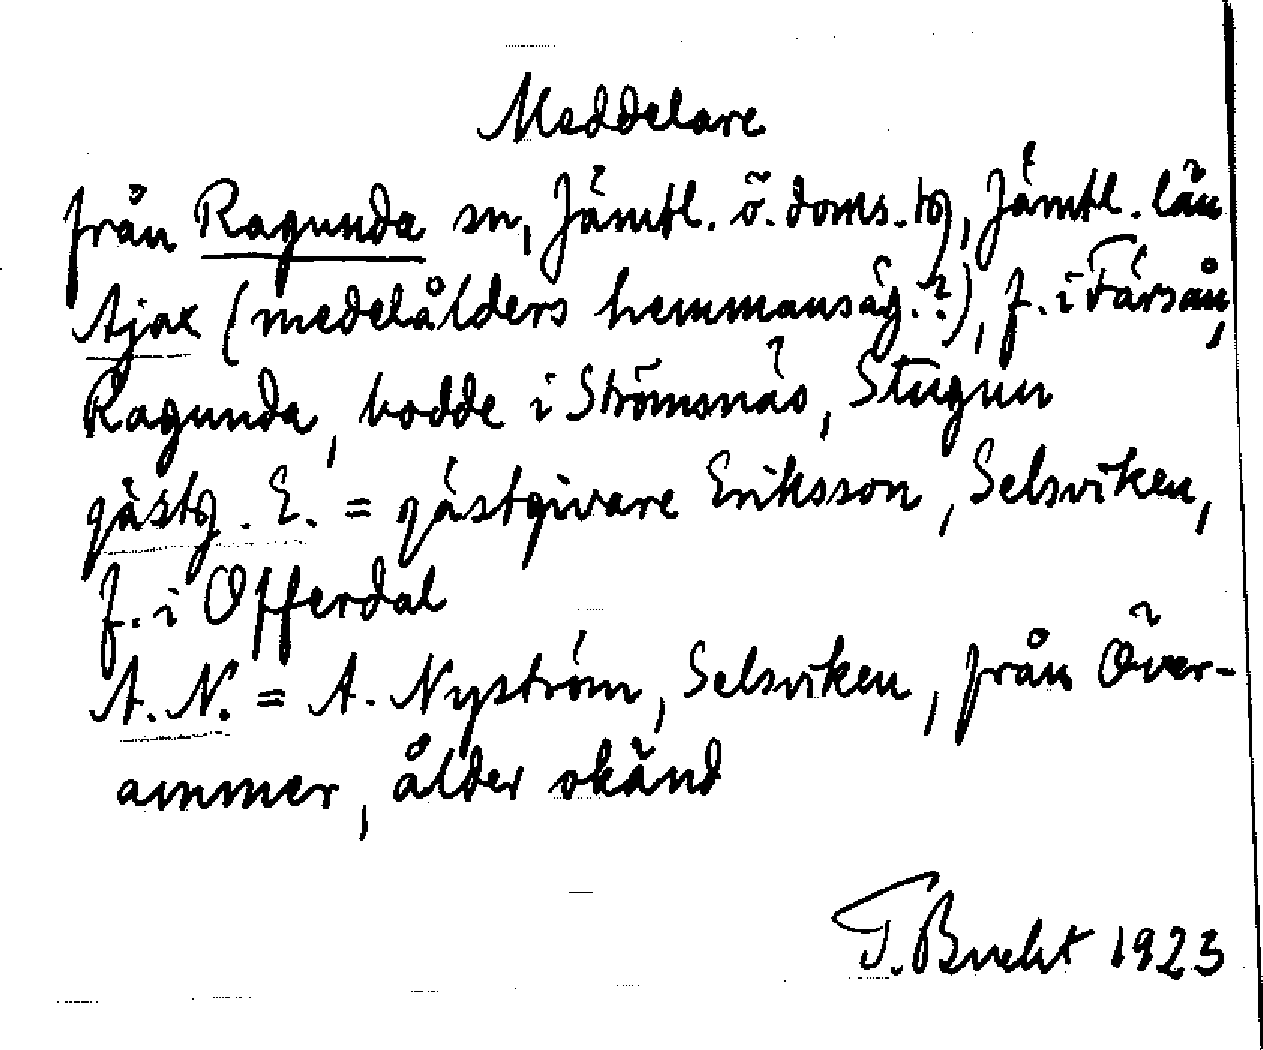 Meddelare
från Ragunda sn, Jämtl. ö. doms.tg, Jämtl. län
Ajax (medelålders hemmansäg.?), f. i Färsån,
Ragunda, bodde i Strömsnäs, Stugun
gästg. E. = gästgivare Eriksson, Selsviken,
f. i Offerdal
A. N. = A. Nyström, Selsviken, från Över-
ammer, ålder okänd
T. Bucht 1923